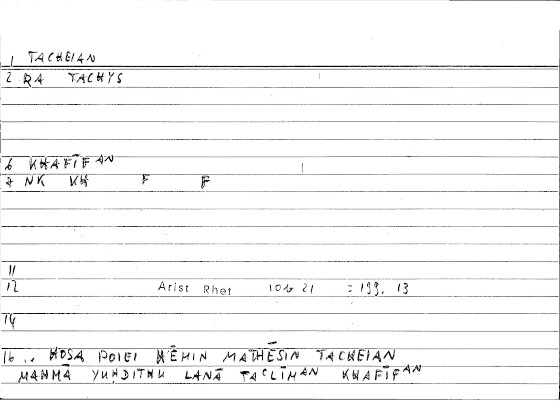 1 TACHEIAN
2 RA TACHYS
6 KHAFĪFAN
7 NK KH F F
11
12 Arist Rhet 10b 21 = 199, 13
14
16 .. HOSA POIEI HĒMIN MATHĒSIN TACHEIAN
MAHMĀ YUHDITHU LANĀ TAʿLĪMAN KHAFĪFAN